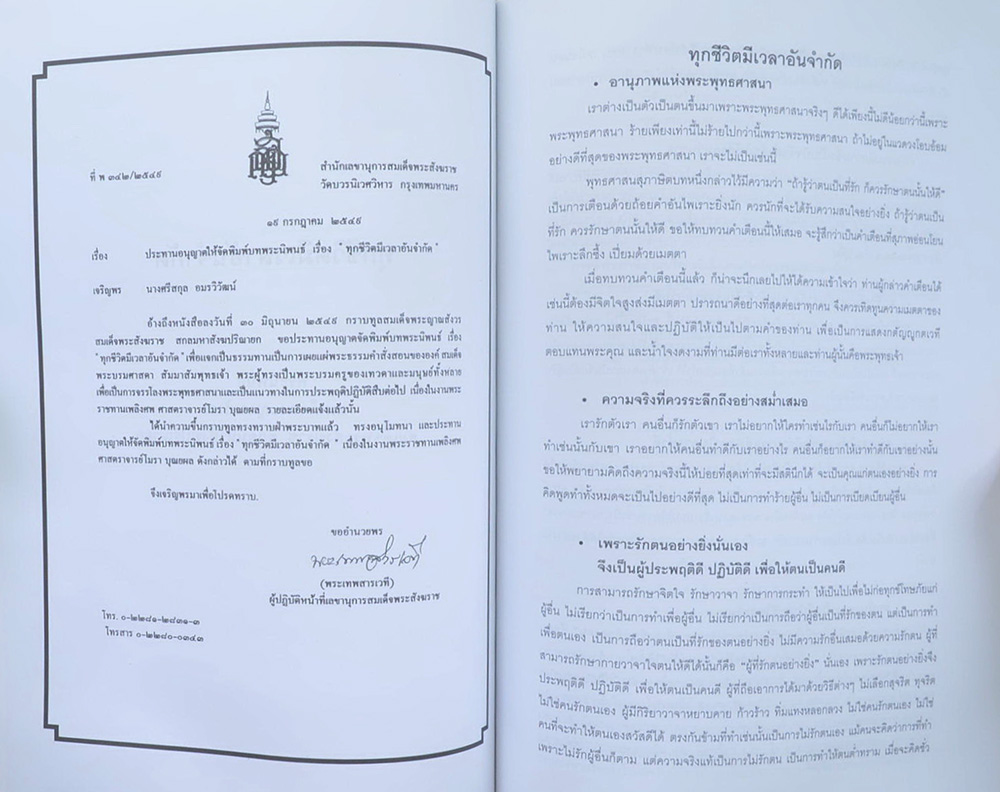 ที่ พ ๓๔๒/๒๕๔๙
สำนักเลขานุการสมเด็จพระสังฆราช
วัดบวรนิเวศวิหาร กรุงเทพมหานคร
๑๙ กรกฎาคม ๒๕๔๙
เรื่อง ประทานอนุญาตให้จัดพิมพ์บทพระนิพนธ์ เรื่อง " ทุกชีวิตมีเวลาอันจำกัด "
เจริญพร นางศรีสกุล อมรวิวัฒน์
อ้างถึงหนังสือลงวันที่ ๓๐ มิถุนายน ๒๕๔๙ กราบทูลสมเด็จพระญาณสังวร
สมเด็จพระสังฆราช สกลมหาสังฆปริณายก ขอประทานอนุญาตจัดพิมพ์บทพระนิพนธ์ เรื่อง
" ทุกชีวิตมีเวลาอันจำกัด " เพื่อแจกเป็นธรรมทานเป็นการเผยแผ่พระธรรมคำสั่งสอนขององค์ สมเด็จ
พระบรมศาสดา สัมมาสัมพุทธเจ้า พระผู้ทรงเป็นพระบรมครูของเทวดาและมนุษย์ทั้งหลาย
เพื่อเป็นการจรรโลงพระพุทธศาสนาและเป็นแนวทางในการประพฤติปฏิบัติสืบต่อไป เนื่องในงานพระ
ราชทานเพลิงศพ ศาสตราจารย์โมรา บุณยผล รายละเอียดแจ้งแล้วนั้น
ได้นำความขึ้นกราบทูลทรงทราบฝ่าพระบาทแล้ว ทรงอนุโมทนา และประทาน
อนุญาตให้จัดพิมพ์บทพระนิพนธ์ เรื่อง " ทุกชีวิตมีเวลาอันจำกัด " เนื่องในงานพระราชทานเพลิงศพ
ศาสตราจารย์โมรา บุณยผล ดังกล่าวได้ ตามที่กราบทูลขอ
จึงเจริญพรมาเพื่อโปรดทราบ.
ขออำนวยพร
(พระเทพสารเวที)
ผู้ปฏิบัติหน้าที่เลขานุการสมเด็จพระสังฆราช
โทร. ๐-๒๒๘๑-๒๘๓๑-๓
โทรสาร ๐-๒๒๘๐-๐๓๔๓
ทุกชีวิตมีเวลาอันจำกัด
• อานุภาพแห่งพระพุทธศาสนา
เราต่างเป็นตัวเป็นตนขึ้นมาเพราะพระพุทธศาสนาจริงๆ ดีได้เพียงนี้ไม่ดีน้อยกว่านี้เพราะ
พระพุทธศาสนา ร้ายเพียงเท่านี้ไม่ร้ายไปกว่านี้เพราะพระพุทธศาสนา ถ้าไม่อยู่ในแวดวงโอบอ้อม
อย่างดีที่สุดของพระพุทธศาสนา เราจะไม่เป็นเช่นนี้
พุทธศาสนสุภาษิตบทหนึ่งกล่าวไว้มีความว่า "ถ้ารู้ว่าตนเป็นที่รัก ก็ควรรักษาตนนั้นให้ดี"
เป็นการเตือนด้วยถ้อยคำอันไพเราะยิ่งนัก ควรนักที่จะได้รับความสนใจอย่างยิ่ง ถ้ารู้ว่าตนเป็น
ที่รัก ควรรักษาตนนั้นให้ดี ขอให้ทบทวนคำเตือนนี้ให้เสมอ จะรู้สึกว่าเป็นคำเตือนที่สุภาพอ่อนโยน
ไพเราะลึกซึ้ง เปี่ยมด้วยเมตตา
เมื่อทบทวนคำเตือนนี้แล้ว ก็น่าจะนึกเลยไปให้ได้ความเข้าใจว่า ท่านผู้กล่าวคำเตือนได้
เช่นนี้ต้องมีจิตใจสูงส่งมีเมตตา ปรารถนาดีอย่างที่สุดต่อเราทุกคน จึงควรเทิดทูนความเมตตาของ
ท่าน ให้ความสนใจและปฏิบัติให้เป็นไปตามคำของท่าน เพื่อเป็นการแสดงกตัญญูกตเวที
ตอบแทนพระคุณ และน้ำใจงดงามที่ท่านมีต่อเราทั้งหลายและท่านผู้นั้นคือพระพุทธเจ้า
• ความจริงที่ควรระลึกถึงอย่างสม่ำเสมอ
เรารักตัวเรา คนอื่นก็รักตัวเขา เราไม่อยากให้ใครทำเช่นไรกับเรา คนอื่นก็ไม่อยากให้เรา
ทำเช่นนั้นกับเขา เราอยากให้คนอื่นทำดีกับเราอย่างไร คนอื่นก็อยากให้เราทำดีกับเขาอย่างนั้น
ขอให้พยายามคิดถึงความจริงนี้ให้บ่อยที่สุดเท่าที่จะมีสตินึกได้ จะเป็นคุณแก่ตนเองอย่างยิ่ง การ
คิดพูดทำทั้งหมดจะเป็นไปอย่างดีที่สุด ไม่เป็นการทำร้ายผู้อื่น ไม่เป็นการเบียดเบียนผู้อื่น
• เพราะรักตนอย่างยิ่งนั่นเอง
จึงเป็นผู้ประพฤติดี ปฏิบัติดี เพื่อให้ตนเป็นคนดี
การสามารถรักษาจิตใจ รักษาวาจา รักษาการกระทำ ให้เป็นไปเพื่อไม่ก่อทุกข์โทษภัยแก่
ผู้อื่น ไม่เรียกว่าเป็นการทำเพื่อผู้อื่น ไม่เรียกว่าเป็นการถือว่าผู้อื่นเป็นที่รักของตน แต่เป็นการทำ
เพื่อตนเอง เป็นการถือว่าตนเป็นที่รักของตนอย่างยิ่ง ไม่มีความรักอื่นเสมอด้วยความรักตน ผู้ที่
สามารถรักษากายวาจาใจตนให้ดีได้นั้นก็คือ "ผู้ที่รักตนอย่างยิ่ง" นั่นเอง เพราะรักตนอย่างยิ่งจึง
ประพฤติดี ปฏิบัติดี เพื่อให้ตนเป็นคนดี ผู้ที่ถือเอาการได้มาด้วยวิธีต่างๆ ไม่เลือกสุจริต ทุจริต
ไม่ใช่คนรักตนเอง ผู้มีกิริยาวาจาหยาบคาย ก้าวร้าว ทิ่มแทงหลอกลวง ไม่ใช่คนรักตนเอง ไม่ใช่
คนที่จะทำให้ตนเองสวัสดีได้ ตรงกันข้ามที่ทำเช่นนั้นเป็นการไม่รักตนเอง แม้คนจะคิดว่าการที่ทำ
เพราะไม่รักผู้อื่นก็ตาม แต่ความจริงแท้เป็นการไม่รักตน เป็นการทำให้ตนต่ำทราม เมื่อจะคิดชั่ว